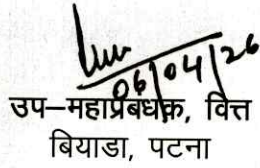 06/04/26
उप–महाप्रबंधक, वित्त
बियाडा, पटना